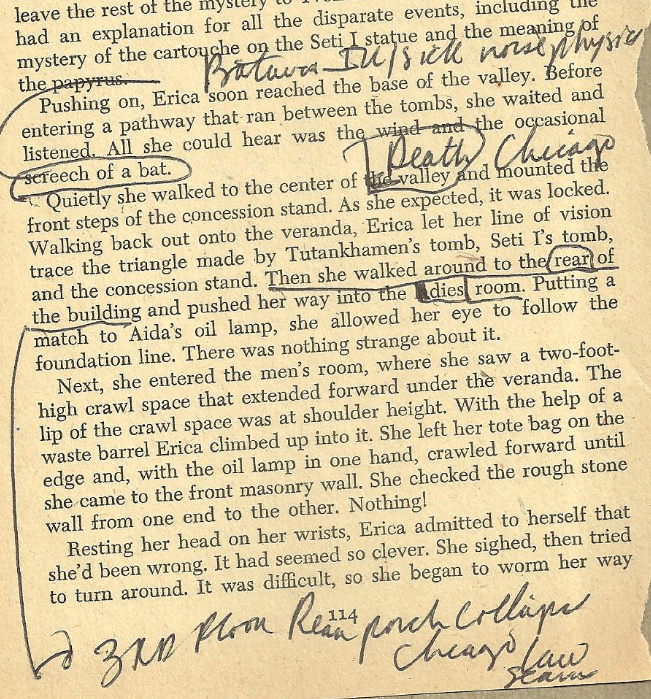 leave the rest of the mystery to
had an explanation for all the disparate events, including the
mystery of the cartouche on the Seti I statue and the meaning of
the papyrus.
Batavia Ill/sick nurse physic
Pushing on, Erica soon reached the base of the valley. Before
entering a pathway that ran between the tombs, she waited and
listened. All she could hear was the wind and the occasional
screech of a bat.
Death Chicago
Quietly she walked to the center of the valley and mounted the
front steps of the concession stand. As she expected, it was locked.
Walking back out onto the veranda, Erica let her line of vision
trace the triangle made by Tutankhamen's tomb, Seti I's tomb,
and the concession stand. Then she walked around to the rear of
the building and pushed her way into the dies room. Putting a
match to Aida's oil lamp, she allowed her eye to follow the
foundation line. There was nothing strange about it.
Next, she entered the men's room, where she saw a two-foot-
high crawl space that extended forward under the veranda. The
lip of the crawl space was at shoulder height. With the help of a
waste barrel Erica climbed up into it. She left her tote bag on the
edge and, with the oil lamp in one hand, crawled forward until
she came to the front masonry wall. She checked the rough stone
wall from one end to the other. Nothing!
Resting her head on her wrists, Erica admitted to herself that
she'd been wrong. It had seemed so clever. She sighed, then tried
to turn around. It was difficult, so she began to worm her way
114
3RD Floor Rear porch collapse
Chicago law